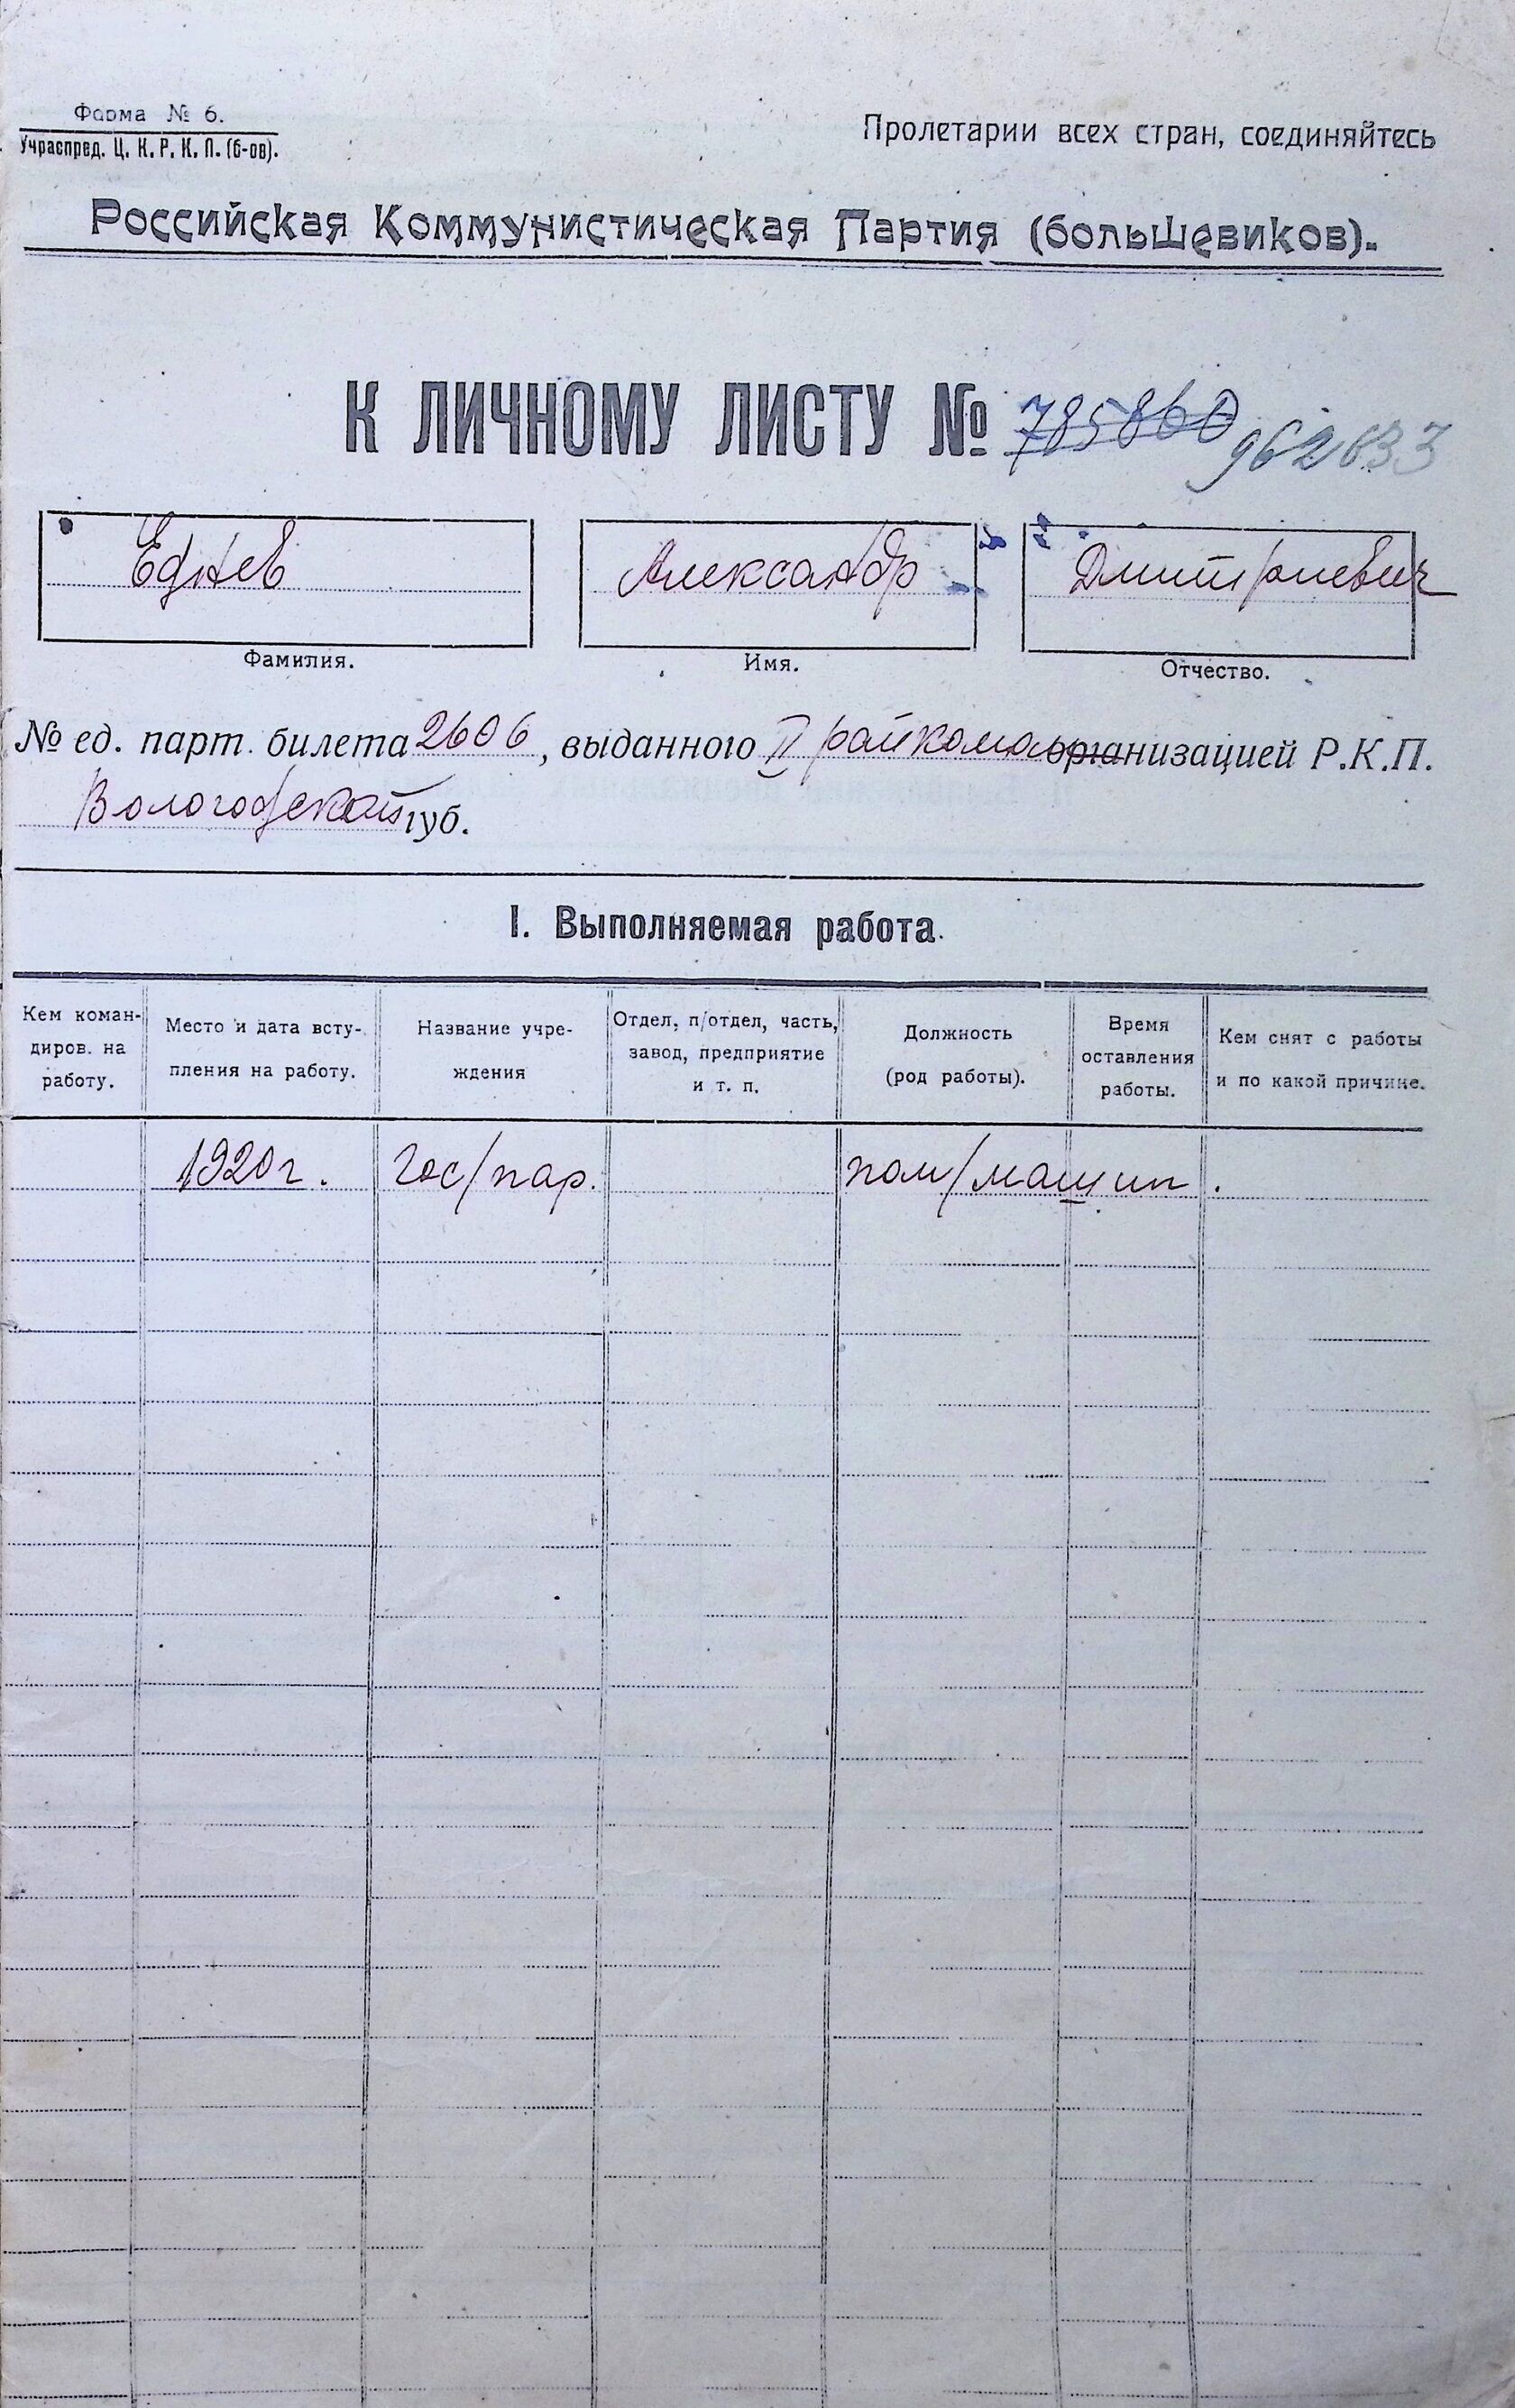 Форма № 6.
Учраспред. Ц. К. Р. К. П. (б-ов).
Пролетарии всех стран, соединяйтесь
Российская Коммунистическая Партия (большевиков).
К ЛИЧНОМУ ЛИСТУ № 785860 962833
Еднев Александр Дмитриевич
Фамилия. Имя. Отчество.
№ ед. парт. билета 2606, выданного II райкома организацией Р.К.П.
Вологодской губ.
I. Выполняемая работа.
Кем командиров. на работу. Место и дата вступления на работу. Название учреждения Отдел, п/отдел, часть, завод, предприятие и т. п. Должность (род работы). Время оставления работы. Кем снят с работы и по какой причине.
1920 г. Гос/пар. пом/машин.